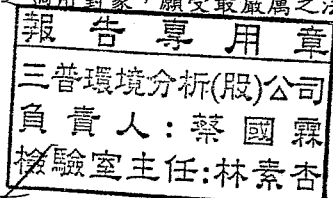 用對象,願受最嚴厲之法
報告專用章
三普環境分析(股)公司
負責人:蔡國霖
檢驗室主任:林素杏